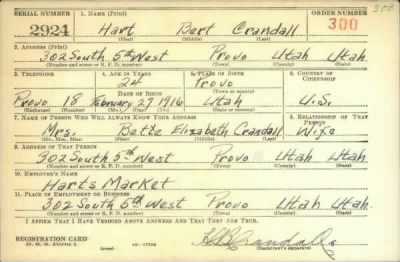 SERIAL NUMBER 1. NAME (Print) ORDER NUMBER
2924 Hart Bert Crandall 300
(First) (Middle) (Last)
2. ADDRESS (Print)
302 South 5th West Provo Utah Utah
(Number and street or R. F. D. number) (Town) (County) (State)
3. TELEPHONE 4. AGE IN YEARS 5. PLACE OF BIRTH 6. COUNTRY OF CITIZENSHIP
24 Provo
DATE OF BIRTH (Town or county)
Provo 18 February 27 1916 Utah U.S.
(Exchange) (Number) (Mo.) (Day) (Yr.) (State or country)
7. NAME OF PERSON WHO WILL ALWAYS KNOW YOUR ADDRESS 8. RELATIONSHIP OF THAT PERSON
Mrs. Elizabeth Crandall Wife
(Mr., Mrs., Miss) (First) (Middle) (Last)
9. ADDRESS OF THAT PERSON
302 South 5th West Provo Utah Utah
(Number and street or R. F. D. number) (Town) (County) (State)
10. EMPLOYER'S NAME
Harts Market
11. PLACE OF EMPLOYMENT OR BUSINESS
302 South 5th West Provo Utah Utah
(Number and street or R. F. D. number) (Town) (County) (State)
I AFFIRM THAT I HAVE VERIFIED ABOVE ANSWERS AND THAT THEY ARE TRUE.
REGISTRATION CARD
D. S. S. Form 1 (over) (Registrant's signature)